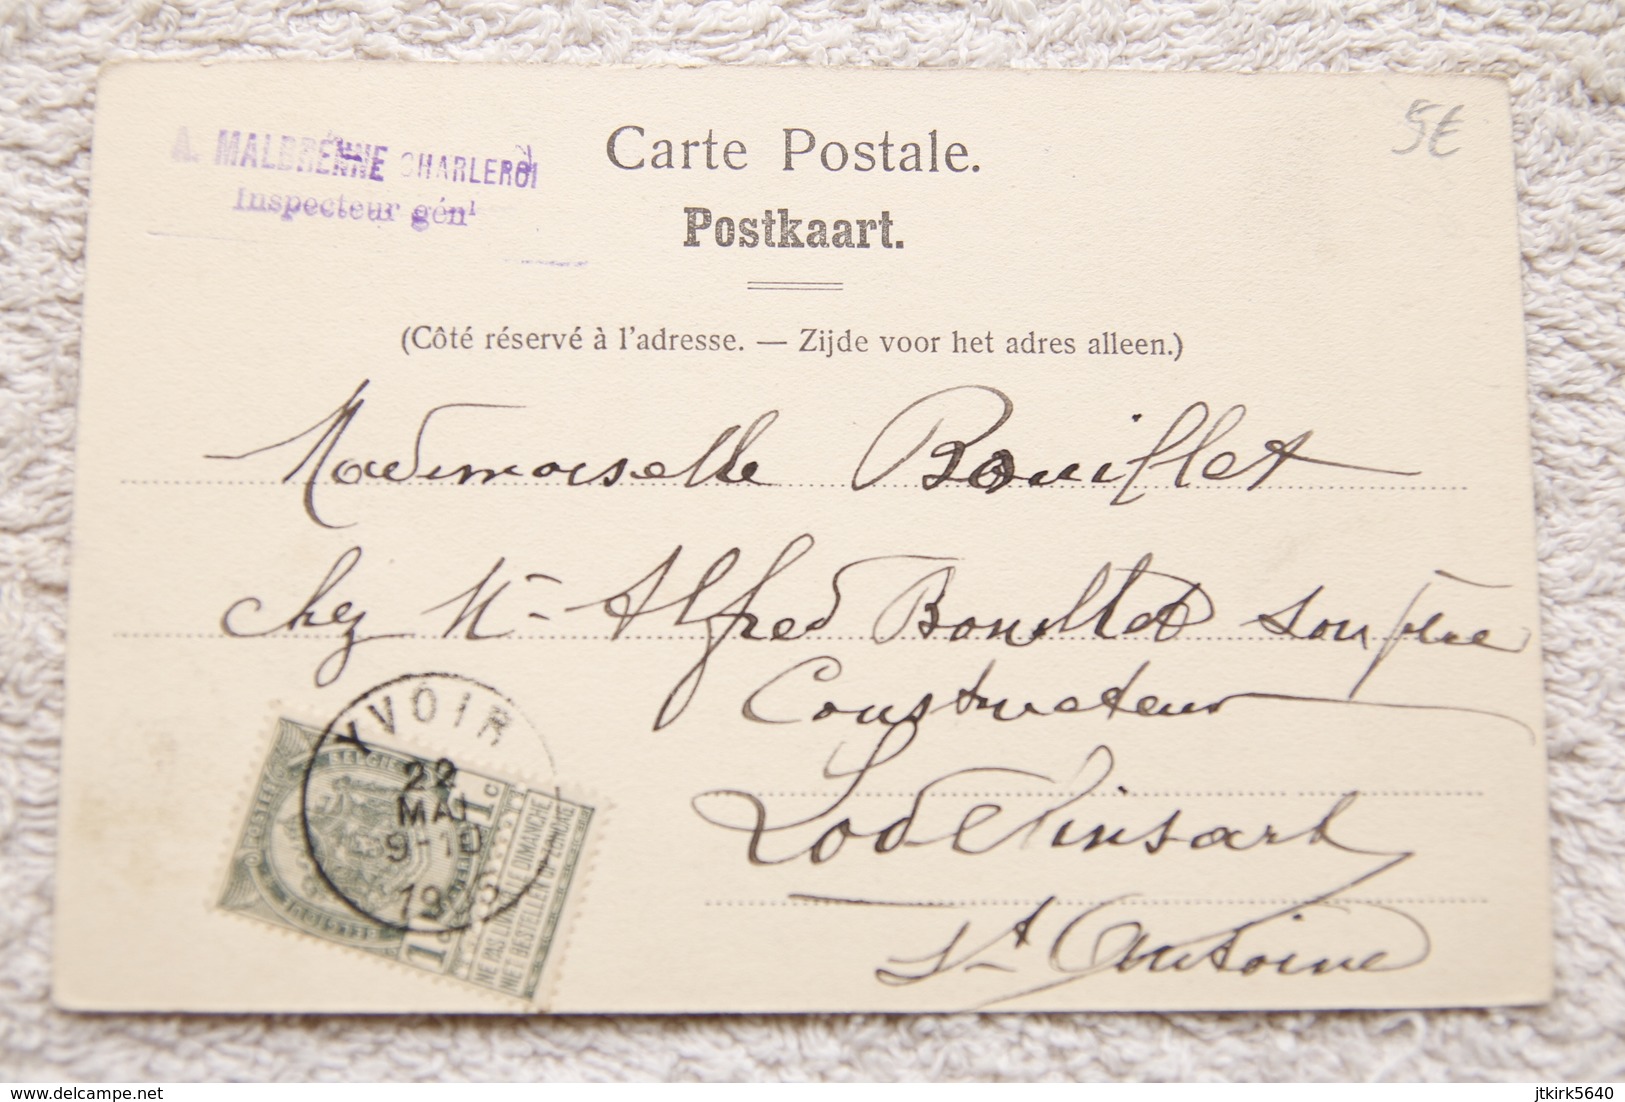 A. MALBRENNE CHARLEROI
Inspecteur génˡ
5€
Carte Postale.
Postkaart.
(Côté réservé à l'adresse. — Zijde voor het adres alleen.)
Mademoiselle Bouillet
chez Mr Alfred Bouillet son père
Constructeur
Lodelinsart
St Antoine
YVOIR
22
MAI
9-10
POSTES
BELGIE
1c
NE PAS LIVRER LE DIMANCHE
NIET BESTELLEN OP ZONDAG
delcampe.net
jtkirk5640